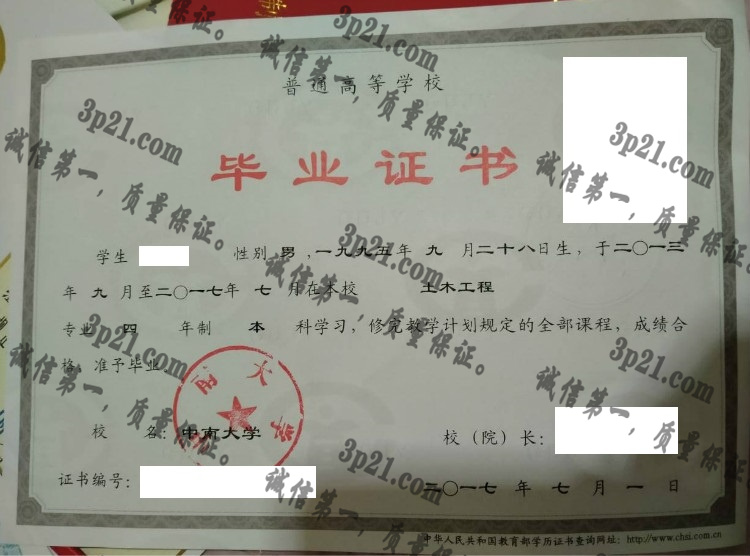 普通高等学校
毕业证书
学生 性别 男,一九九五年 九 月二十八日生,于二〇一三
年 九 月至二〇一七年 七 月在本校 土木工程
专业 四 年制 本 科学习,修完教学计划规定的全部课程,成绩合
格,准予毕业。
校 名:中南大学
校(院)长:
证书编号:
二〇一七 年 七 月 一 日
中华人民共和国教育部学历证书查询网址:http://www.chsi.com.cn
南大学
3p21.com
诚信第一,质量保证。
3p21.com
诚信第一,质量保证。
3p21.com
诚信第一,质量保证。
3p21.com
诚信第一,质量保证。
3p21.com
诚信第一,质量保证。
3p21.com
诚信第一,质量保证。
3p21.com
诚信第一,质量保证。
3p21.com
诚信第一,质量保证。